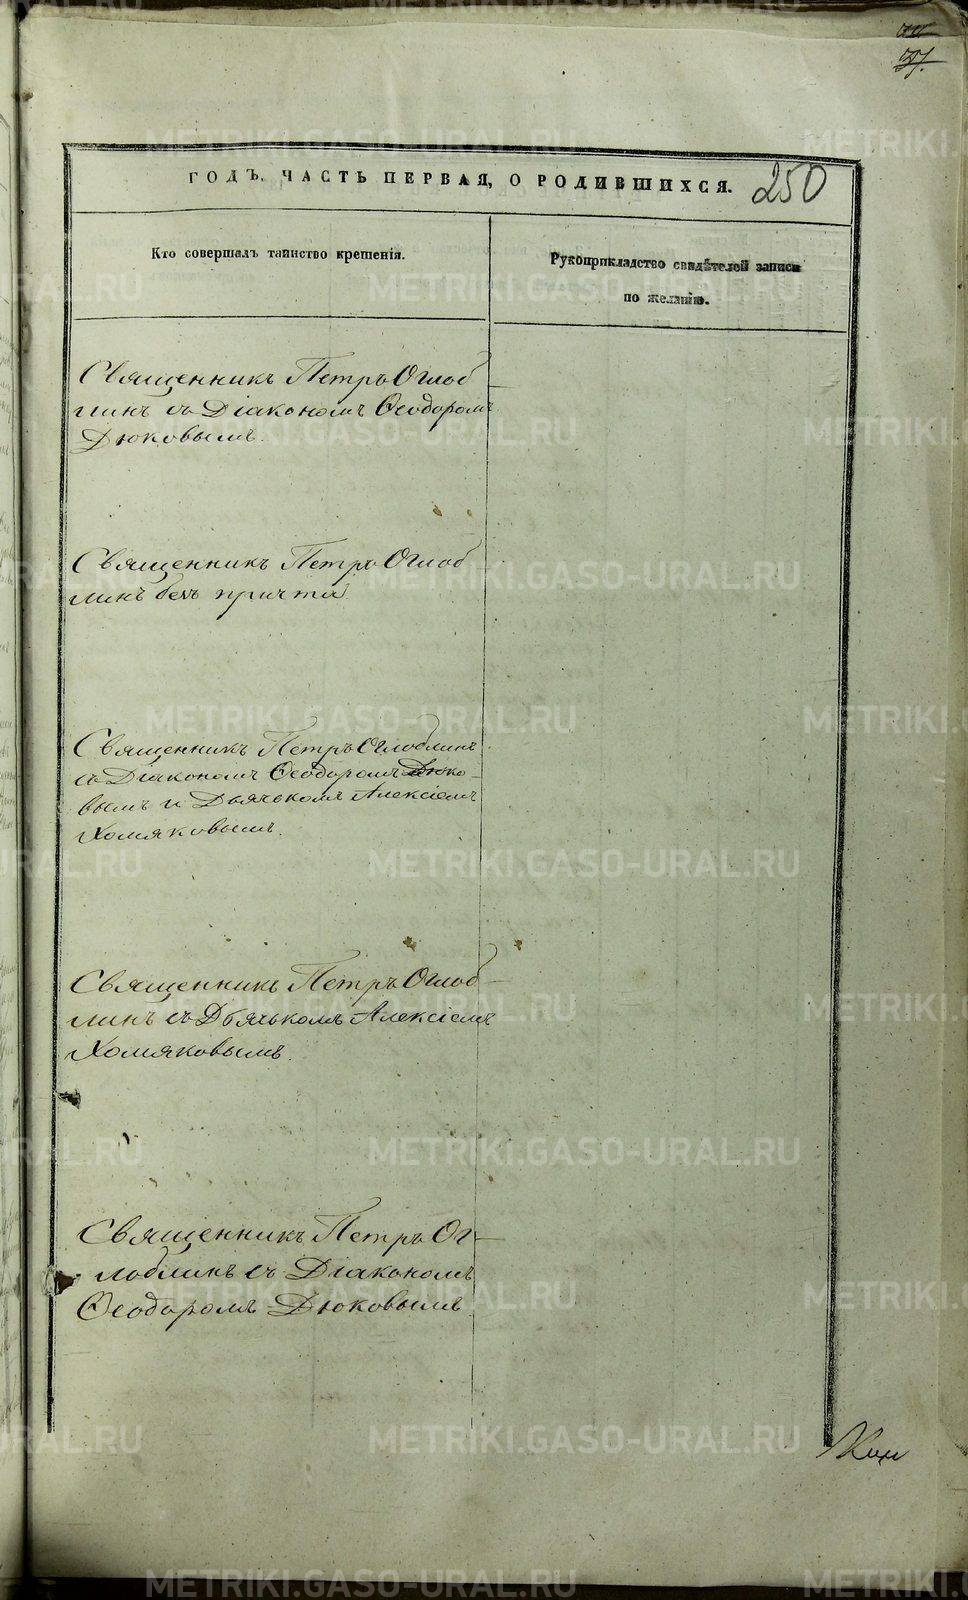 ГОДЪ. ЧАСТЬ ПЕРВАЯ, О РОДИВШИХСЯ.
250
Кто совершалъ таинство крещенія.
Рукоприкладство свидѣтелей записи
по желанію.
Священникъ Петръ Оглоб
линъ съ Діакономъ Ѳеодоромъ
Дюковымъ.
Священникъ Петръ Оглоб
линъ безъ причта
Священникъ Петръ Оглоблинъ
съ Діакономъ Ѳеодоромъ Дюко-
вымъ и Дьячькомъ Алексіемъ
Хомяковымъ.
Священникъ Петръ Оглоб
линъ съ Дьячькомъ Алексіемъ
Хомяковымъ.
Священникъ Петръ Ог-
лоблинъ съ Діакономъ
Ѳеодоромъ Дюковымъ
METRIKI.GASO-URAL.RU